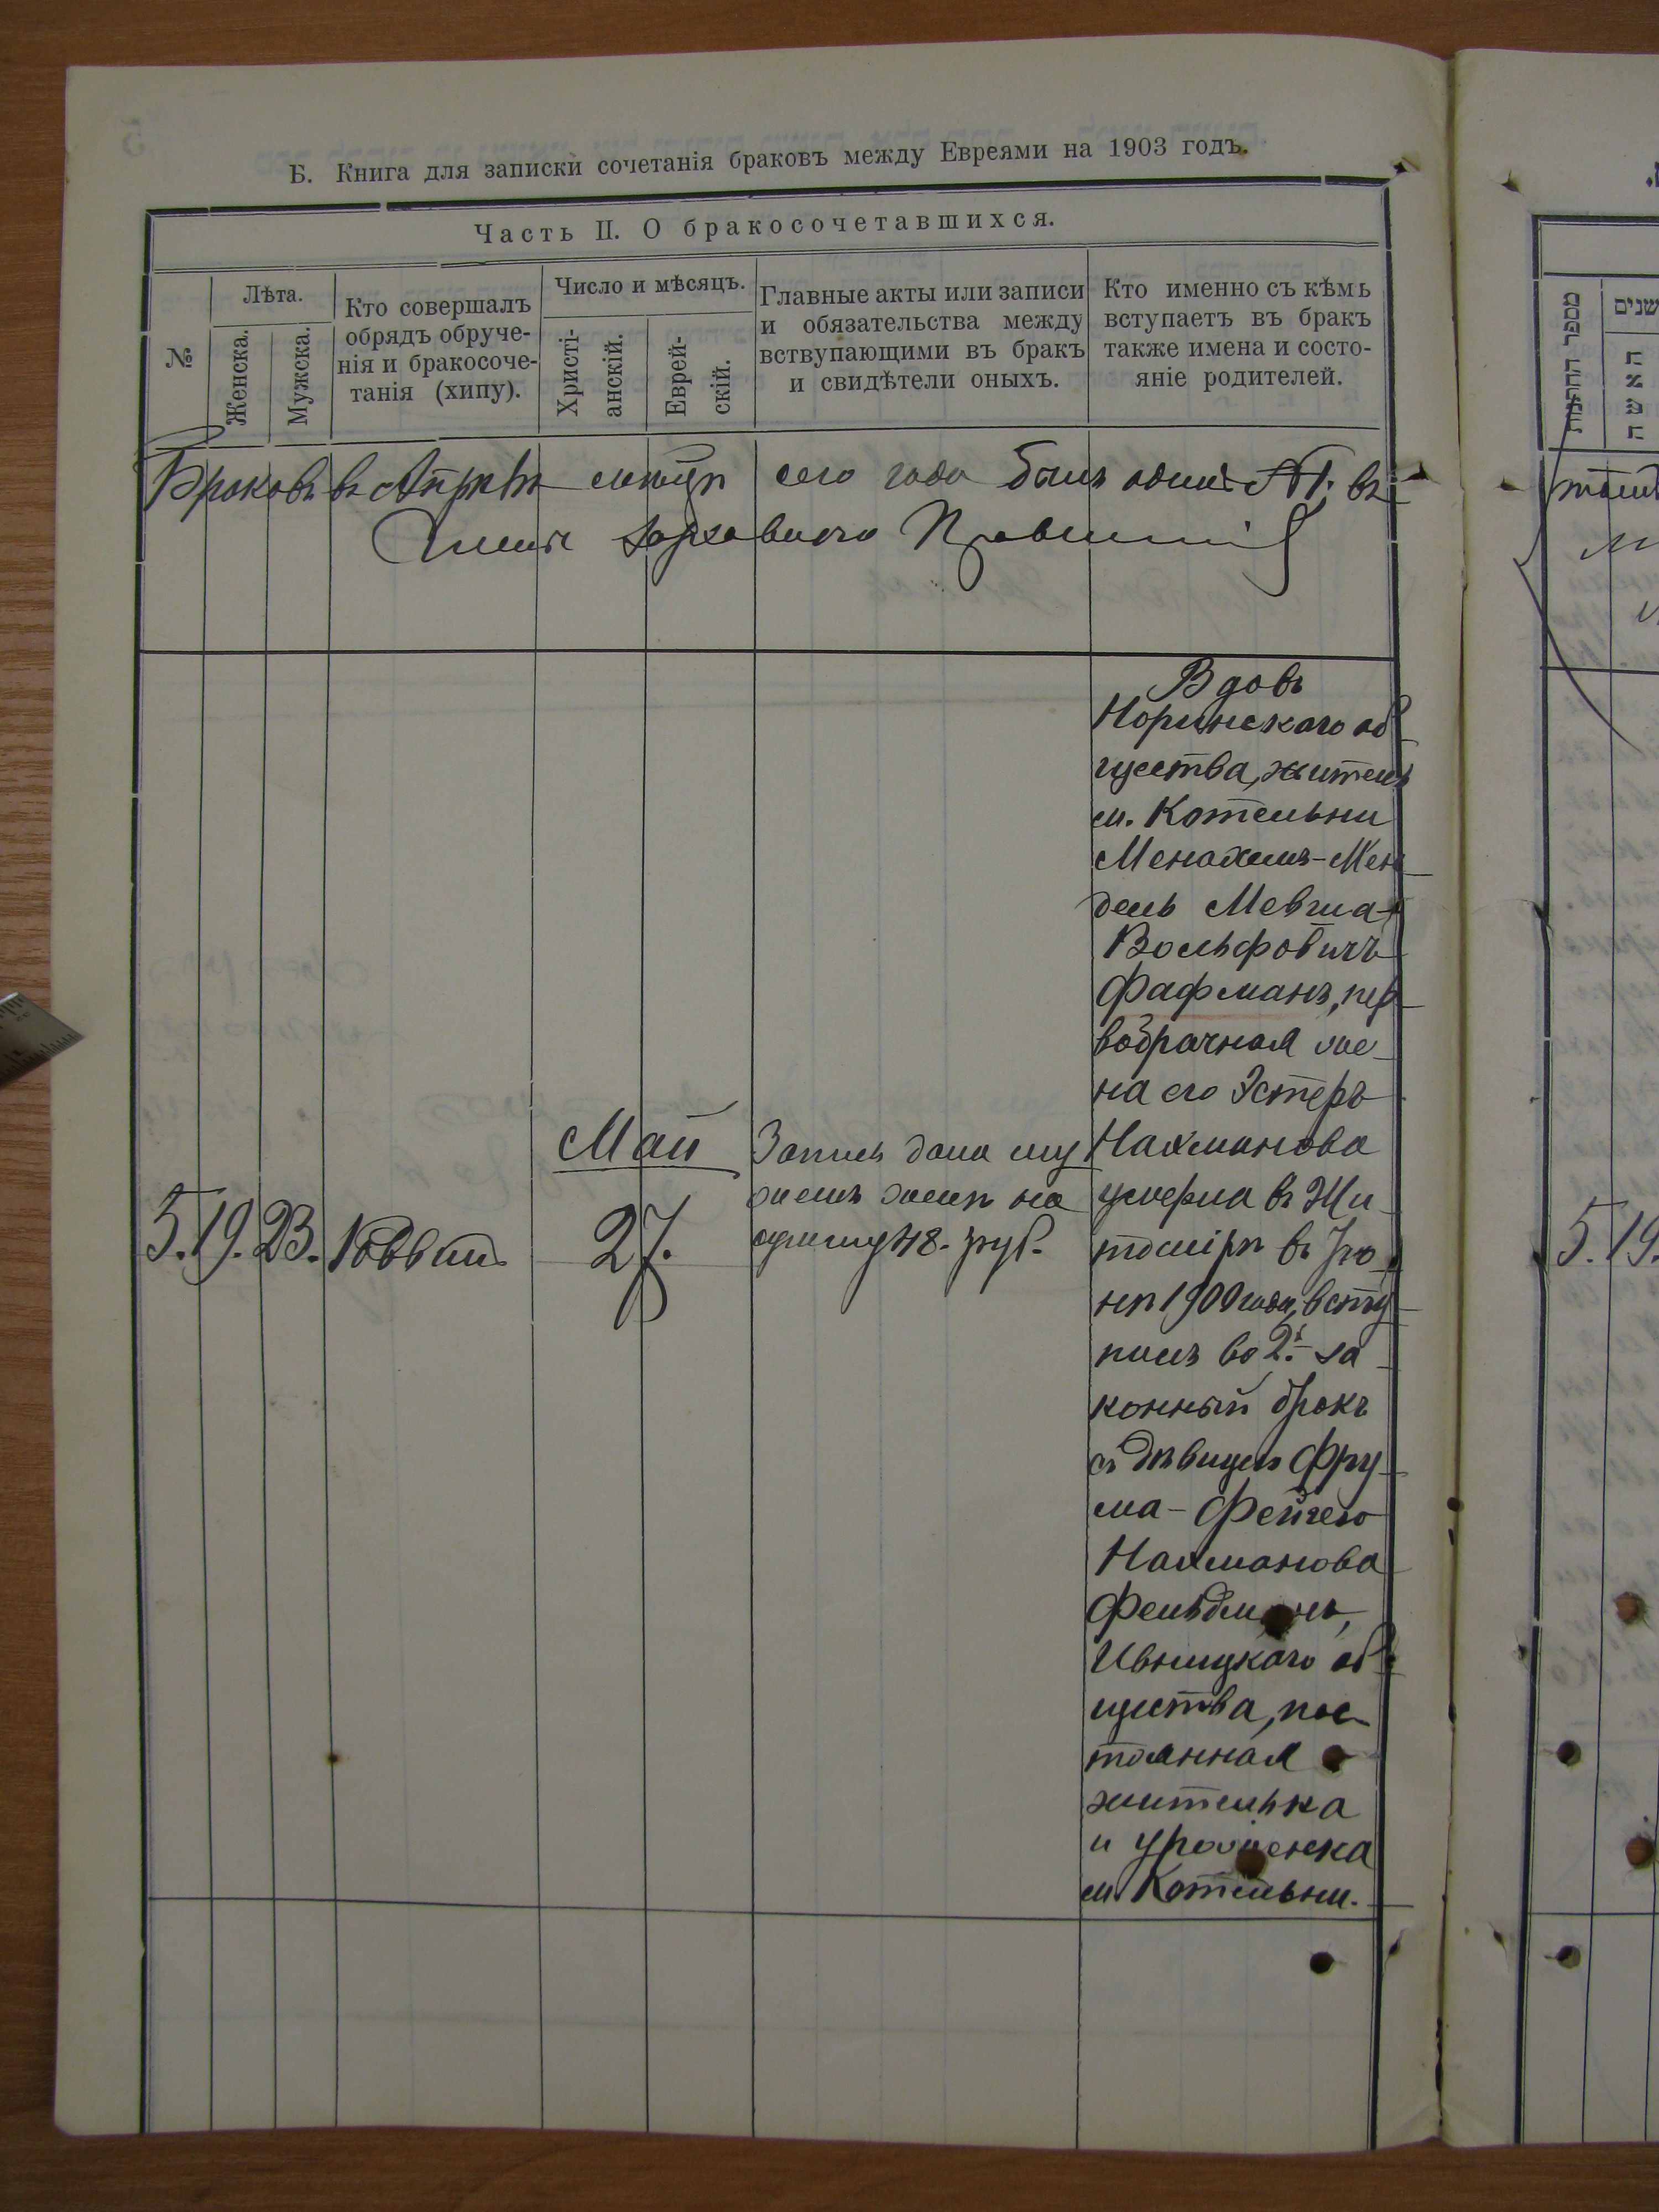 Б. Книга для записки сочетанія браковъ между Евреями на 1903 годъ.
Часть II. О бракосочетавшихся.
№
Лѣта.
Женска.
Мужска.
Кто совершалъ
обрядъ обруче-
нія и бракосоче-
танія (хипу).
Число и мѣсяцъ.
Христі-
анскій.
Еврей-
скій.
Главные акты или записи
и обязательства между
вствупающими въ бракъ
и свидѣтели оныхъ.
Кто именно съ кѣмъ
вступаетъ въ бракъ
также имена и состо-
яніе родителей.
Браковъ въ Апрѣлѣ сего года былъ одинъ №1. въ
5. 19. 23. Раввин
Май
27.
Запись дана му
жемъ женѣ на
сумму 48. руб.
Вдовъ
Норинскаго об
щества, житель
м. Котельни
Менахемъ-Мен
дель Мевша-
Вольфовичъ
Фафманъ, пер
вобрачная же
на его Эстеръ
Нахманова
умерла въ Жи
томірѣ въ Iю
нѣ 1900 года, всту
пилъ во 2й за
конный бракъ
съ дѣвицею Фру
ма-Фейгею
Нахманова
Фельдманъ,
Ивницкаго об
щества, пос
тоянная
жителька
и уроженка
м. Котельни.
מספר החתונות
שנים
האשה
5. 19.